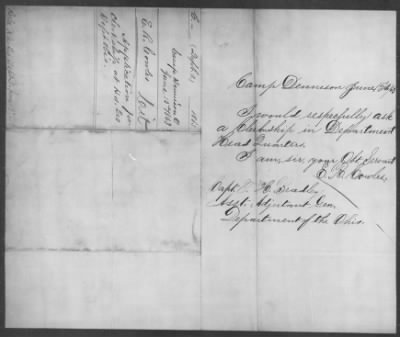 Camp Dennison June 15th 63
I would respectfully ask
a clerkship in Department
Head Quarters.
I am, sir, your Obt Servant
E. R. Cowles,
Capt. H.
Asst. Adjutant Gen.
Department of the Ohio.
Camp Dennison O.
June 15th 1863
E. R. Cowles
Application for
clerkship at Head Qrs
Dept Ohio.